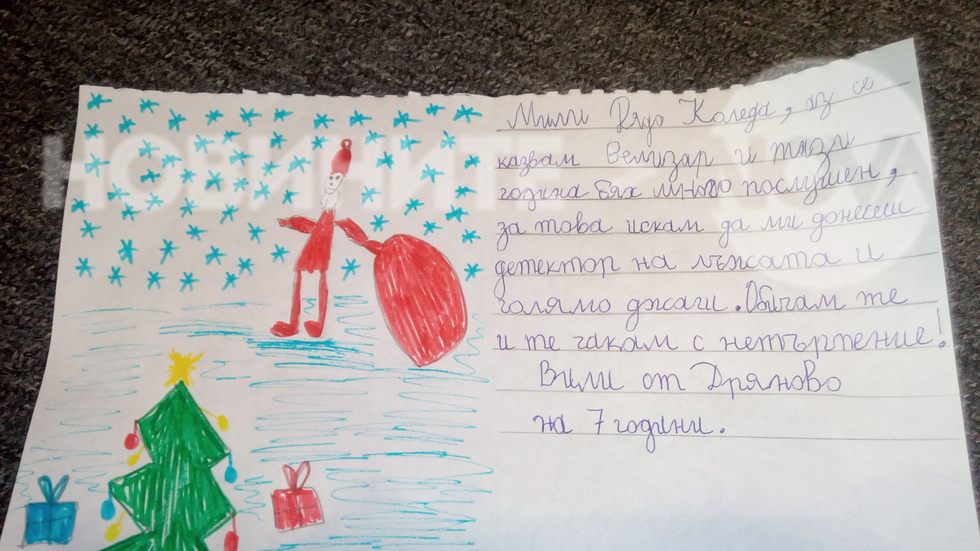 Мили Дядо Коледа, аз се
казвам Велизар и тази
година бях много послушен,
за това искам да ми донесеш
детектор на лъжата и
голямо джаги. Обичам те
и те чакам с нетърпение!
Вили от Дряново
на 7 години.
НОВИНИТЕ